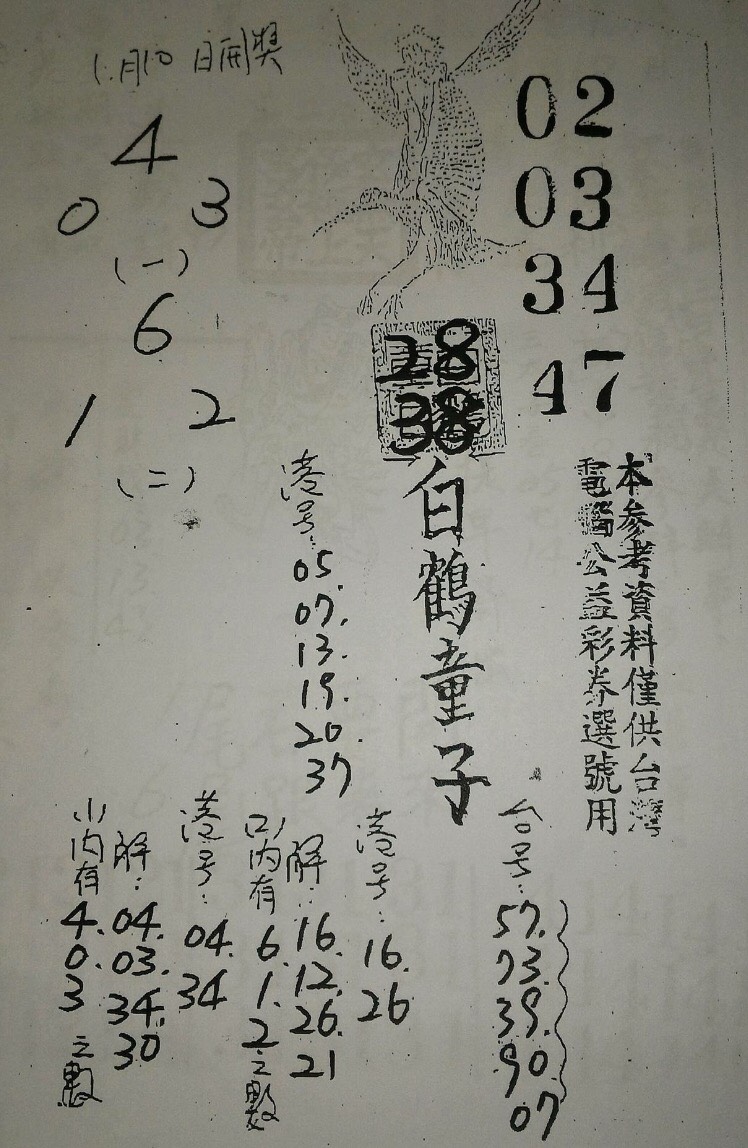 1.月10日開獎
4
0 3
(一)
6
1 2
(二)
02
03
34
47
28
38
白鶴童子
本參考資料僅供台灣
電腦公益彩券選號用
港号:
05.
07.
13.
19.
20.
37
台号:
57.
73.
39.
90.
07
港号:
16.
26
解:
16.
12.
26.
21
(二)內有
6.
1.
2
之數
港号:
04.
34
解:
04.
03.
34.
30
(一)內有
4.
0.
3
之數